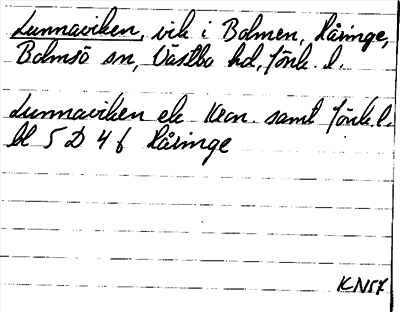 Lunnaviken, vik i Bolmen, Håringe,
Bolmsö sn, Västbo hd, Jönk. l.
Lunnaviken ek Kron. samt Jönk. l.
bl 5 D 4 f Håringe
KN57